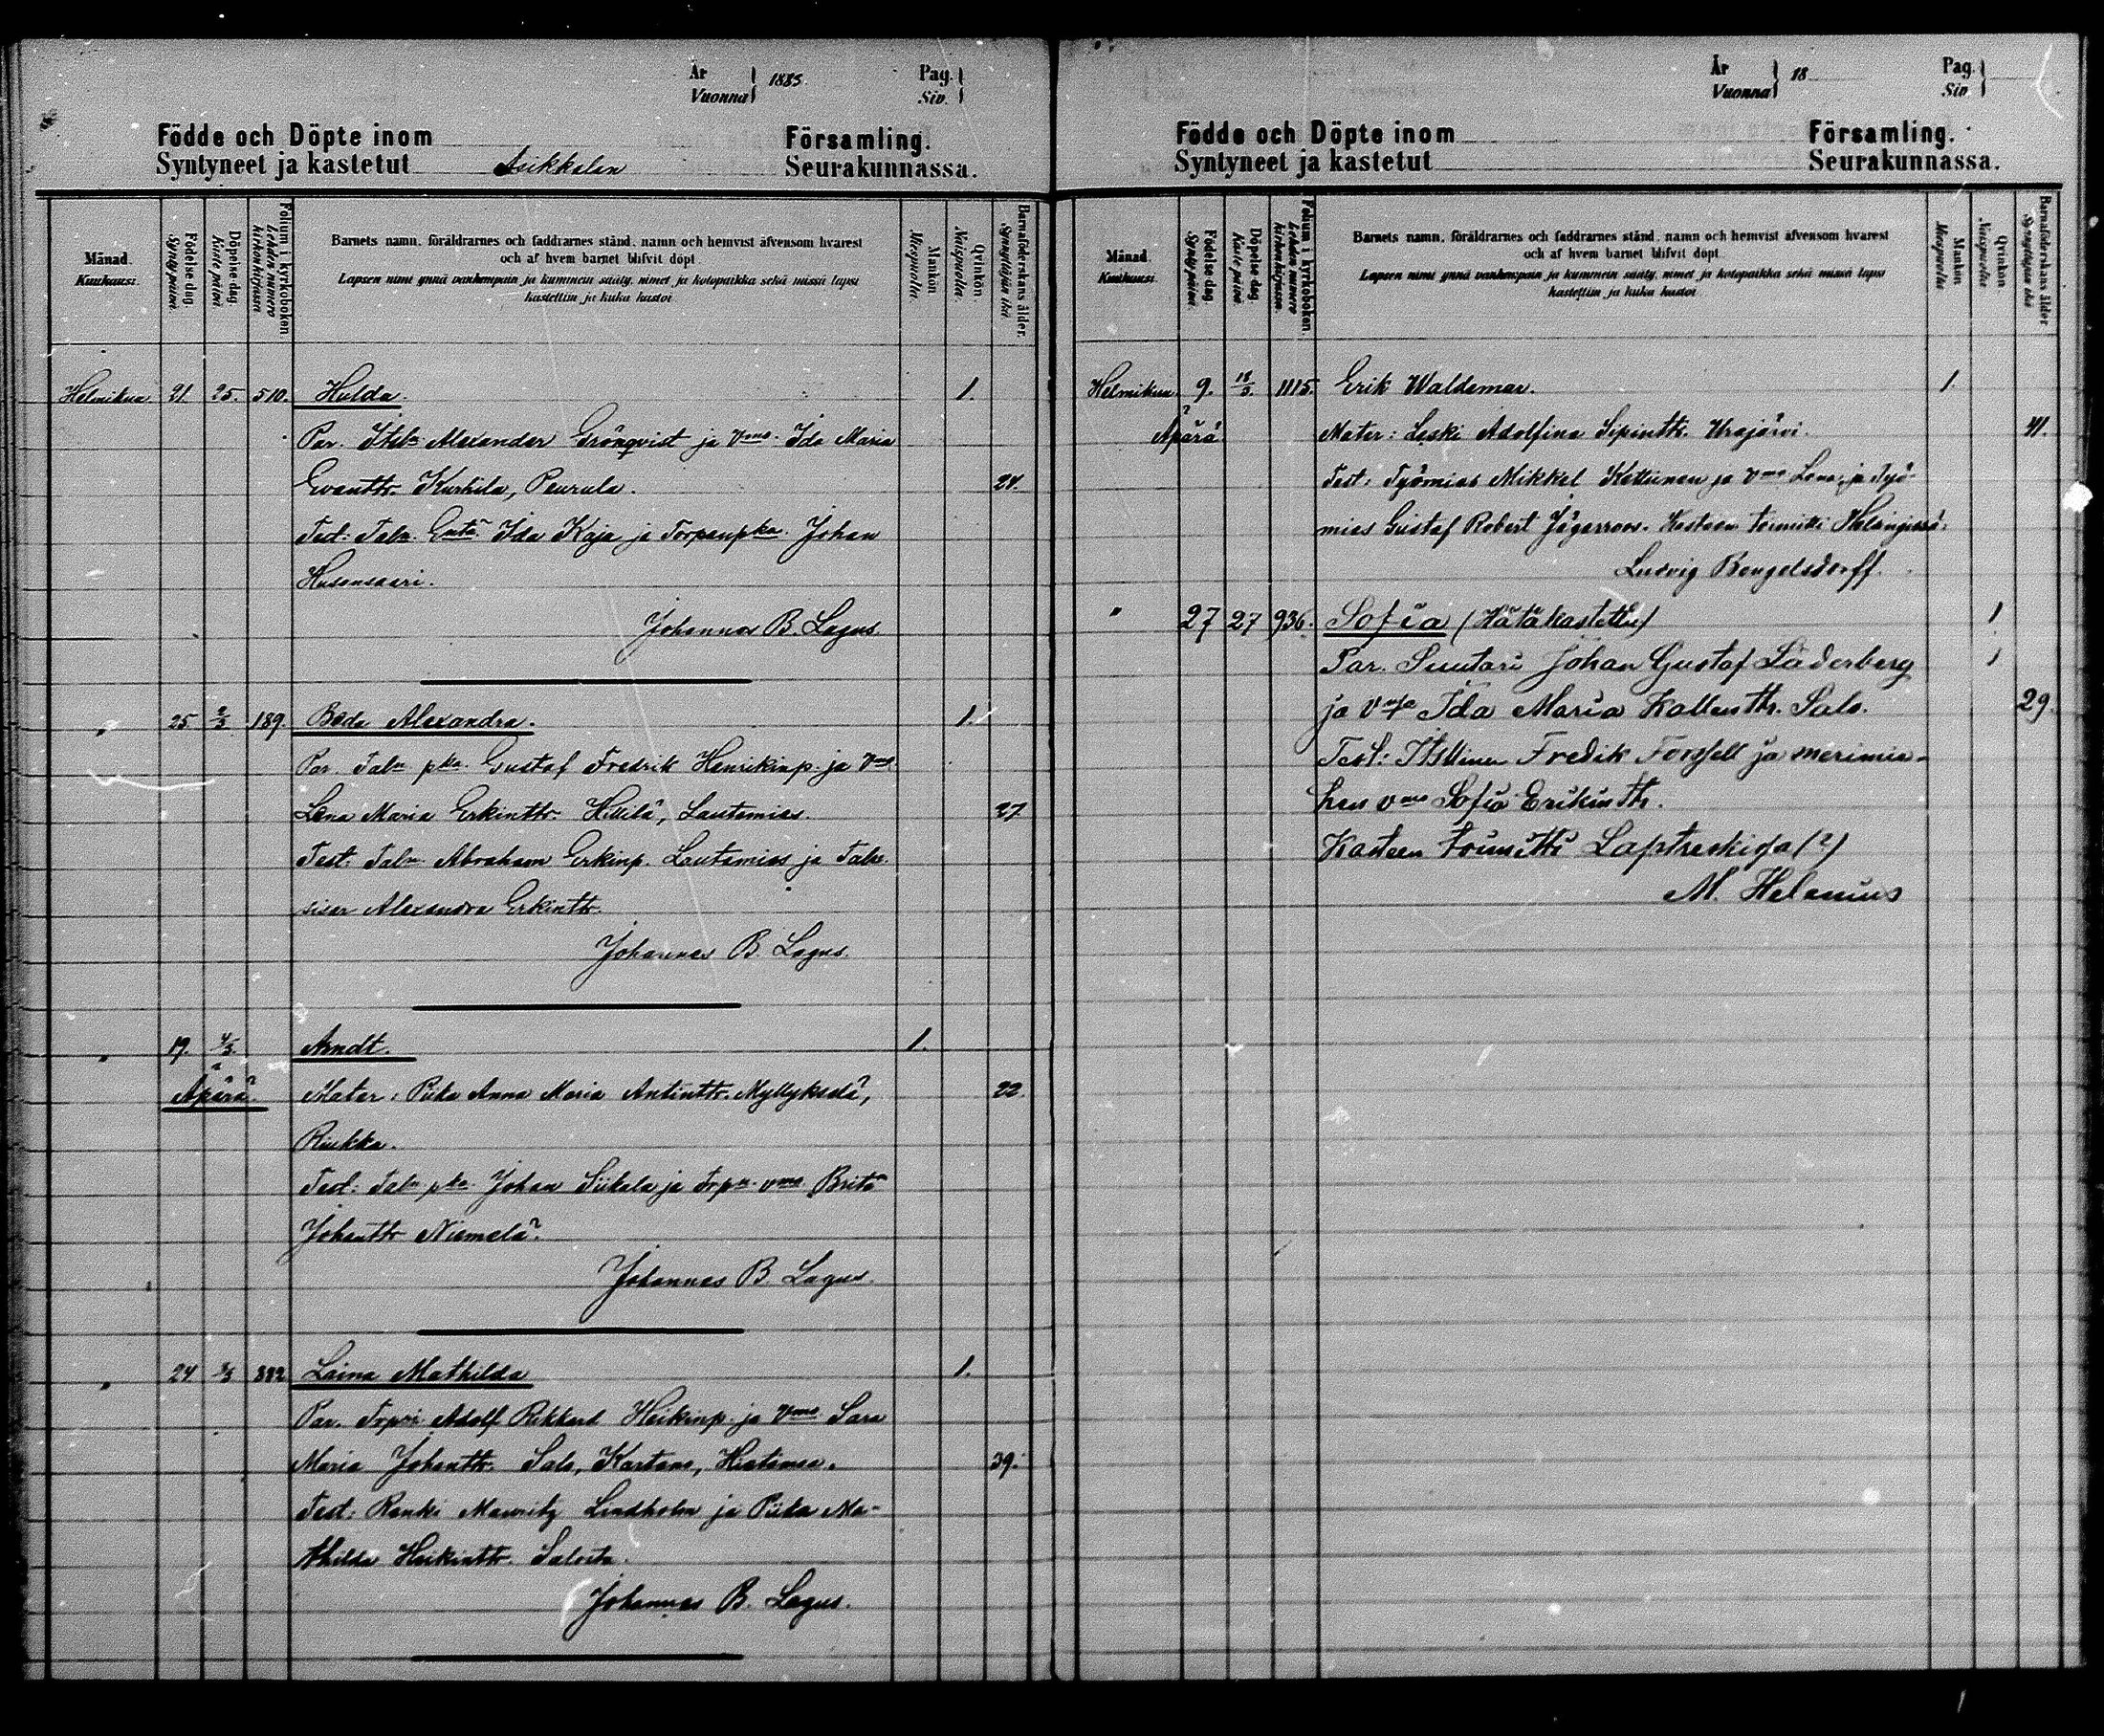 År
Vuonna } 1885.
Pag.
Siv. }
Födde och Döpte inom
Syntyneet ja kastetut Asikkalan
Församling.
Seurakunnassa.
Månad.
Kuukausi.
Födelse dag.
Syntypäivä.
Döpelse dag.
Kastepäivä.
Folium i kyrkoboken.
Lehden numero kirkonkirjassa
Barnets namn, föräldrarnes och faddrarnes stånd, namn och hemvist äfvensom hvarest
och af hvem barnet blifvit döpt.
Lapsen nimi ynnä vanhempain ja kummein sääty, nimet ja kotopaikka sekä missä lapsi
kastettiin ja kuka kastoi
Mankön
Miespuolia.
Qvinkön.
Naispuolia.
Barnaföderskans ålder.
Synnyttäjän ikä
Helmikuu 21. 25. 510. Hulda. 1.
Par. Itsln Alexander Grönqvist ja Vmo. Ida Maria
Evanttr. Kurhila, Peurula. 24.
Test: Taln. Ida Kaja ja Torpanpka. Johan
Husonsaari.
Johannes B. Lagus.
" 25 2/3 189. Beda Alexandra. 1.
Par. Taln pka. Gustaf Fredrik Henrikinp. ja Vmo.
Lena Maria Erkinttr. Hillilä, Lautamies. 27
Test. Taln. Abraham Erkinp. Lautamies ja Taln.
sisar Alexandra Erkinttr.
Johannes B. Lagus.
" 19. 4/3. Arndt. 1.
Äpärä. Mater: Piika Anna Maria Antinttr. Myllykselä, 22.
Riukka.
Test: Taln pka. Johan Siikala ja Trpn. vmo Brita
Johanttr Niemelä.
Johannes B. Lagus.
" 24 3/3 882 Laina Mathilda 1.
Par. Trpri Adolf Rikhard Heikinp. ja Vmo Sara
Maria Johanttr. Salo, Kartano, 39.
Test: Renki Mauritz Lindholm ja Piika Ma-
thilda Heikinttr. Salosta.
Johannes B. Lagus.
År
Vuonna } 18
Pag.
Siv }
Födde och Döpte inom
Syntyneet ja kastetut
Församling.
Seurakunnassa.
Månad.
Kuukausi.
Födelse dag.
Syntypäivä.
Döpelse dag.
Kastepäivä
Folium i kyrkoboken.
Lehden numero kirkonkirjassa.
Barnets namn, föräldrarnes och faddrarnes stånd, namn och hemvist äfvensom hvarest
och af hvem barnet blifvit döpt.
Lapsen nimi ynnä vanhempain ja kummein sääty, nimet ja kotopaikka sekä missä lapsi
kastettiin ja kuka kastoi
Mankön
Miespuolia
Qvinkön
Naispuolia
Barnaföderskans ålder
Synnyttäjän ikä
Helmikuu. 9. 18/3. 1115. Erik Waldemar. 1.
Äpärä Mater: Leski Adolfina Sipinttr. Urajärvi. 41.
Test: Työmies Mikkel Kettunen ja Vmo Lena, ja Työ-
mies Gustaf Robert Jägerroos. Kasteen toimitti Helsingissä:
Ludvig Bengelsdorff.
" 27 27 936. Sofia (Hätäkastettu) 1
Par. Suutari Johan Gustaf Söderberg 1
ja Vmo Ida Maria Kallenttr. Salo. 29.
Test: Itsllinen Fredik Forssell ja merimie-
hen vmo Sofia Erikinttr.
Kasteen toimitti (?)
M. Helenius